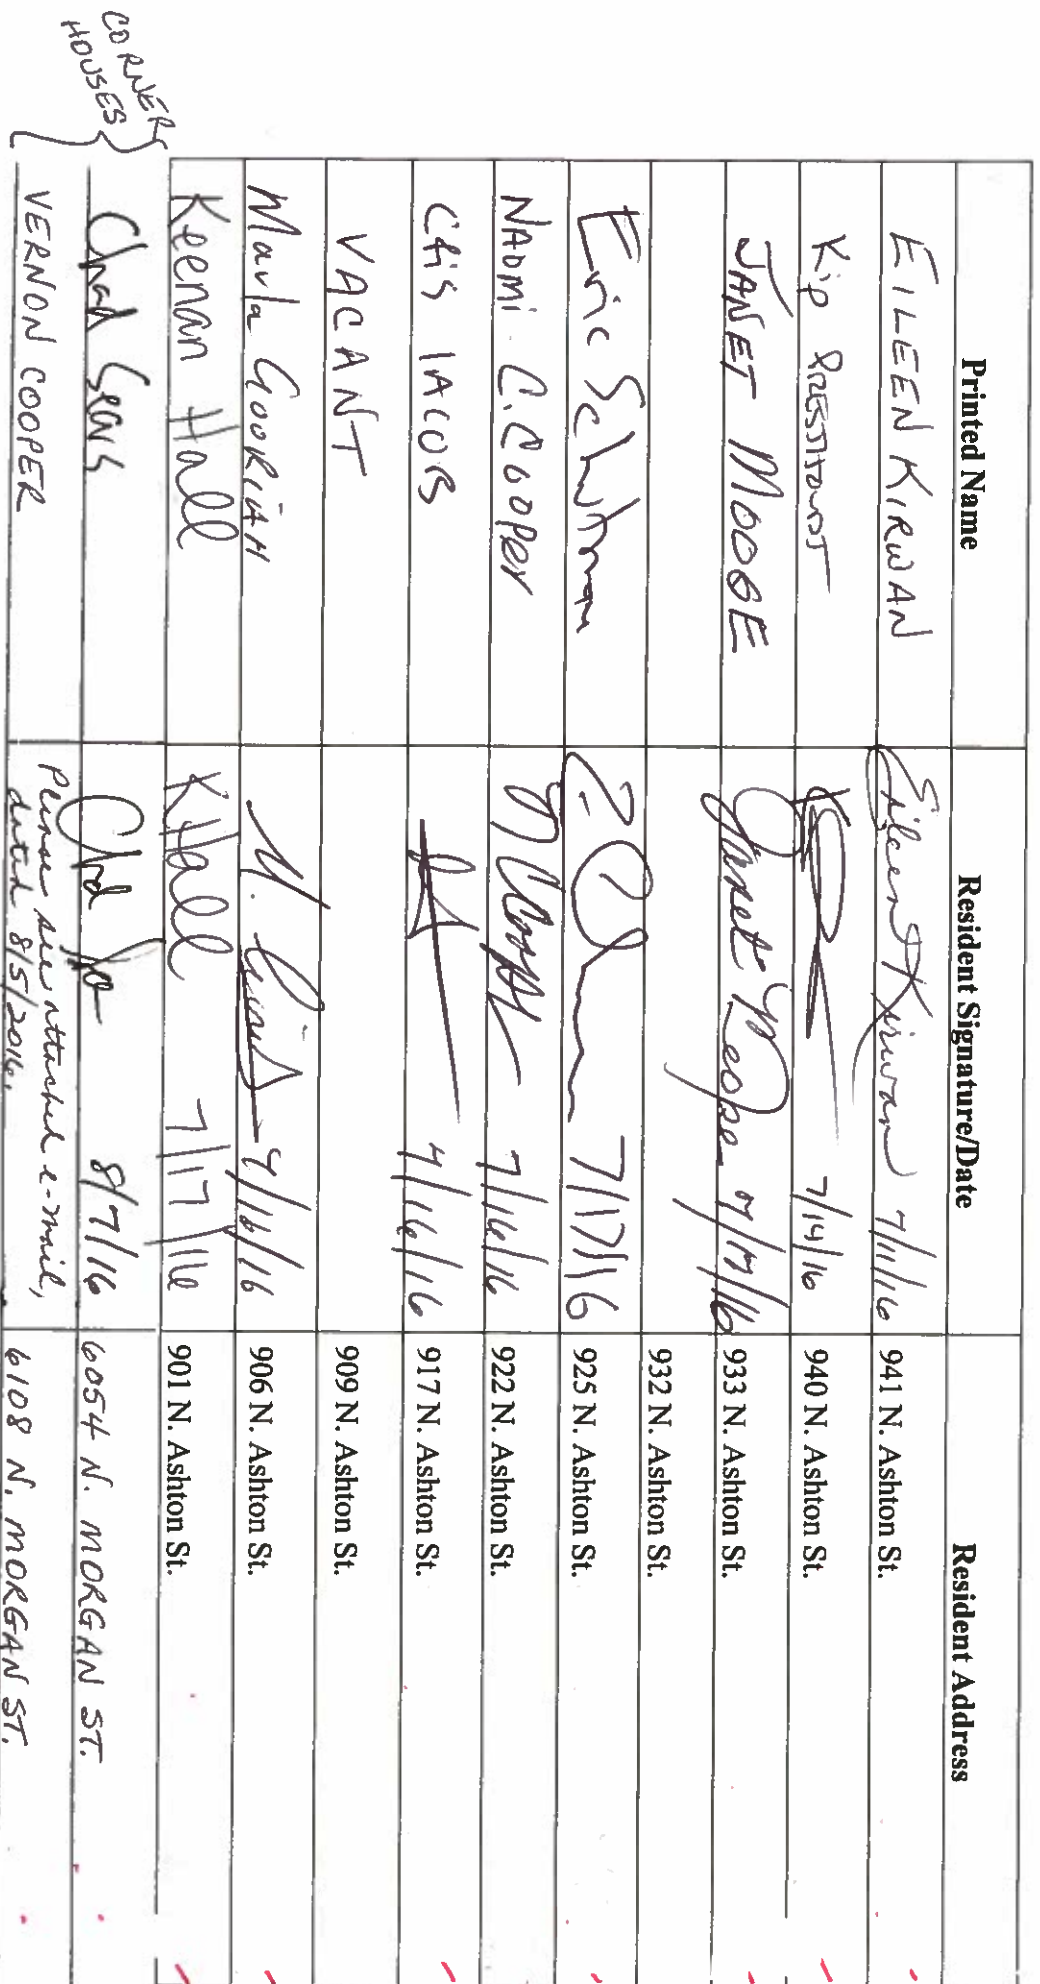 Printed Name Resident Signature/Date Resident Address
EILEEN KIRWAN Eileen Kirwan 7/11/16 941 N. Ashton St.
Kip 7/14/16 940 N. Ashton St.
JANET MOORE Janet Moore 7/17/16 933 N. Ashton St.
932 N. Ashton St.
Eric 7/17/16 925 N. Ashton St.
NAOMI C. COOPER 7/16/16 922 N. Ashton St.
IACOB 7/16/16 917 N. Ashton St.
VACANT 909 N. Ashton St.
Marla GOORIAH M. 7/16/16 906 N. Ashton St.
Keenan Hall K Hall 7/17/16 901 N. Ashton St.
CORNER
HOUSES
Chad Sears Chad 8/7/16 6054 N. MORGAN ST.
VERNON COOPER Please see attached e-mail, 6108 N. MORGAN ST.
dated 8/5/2016.